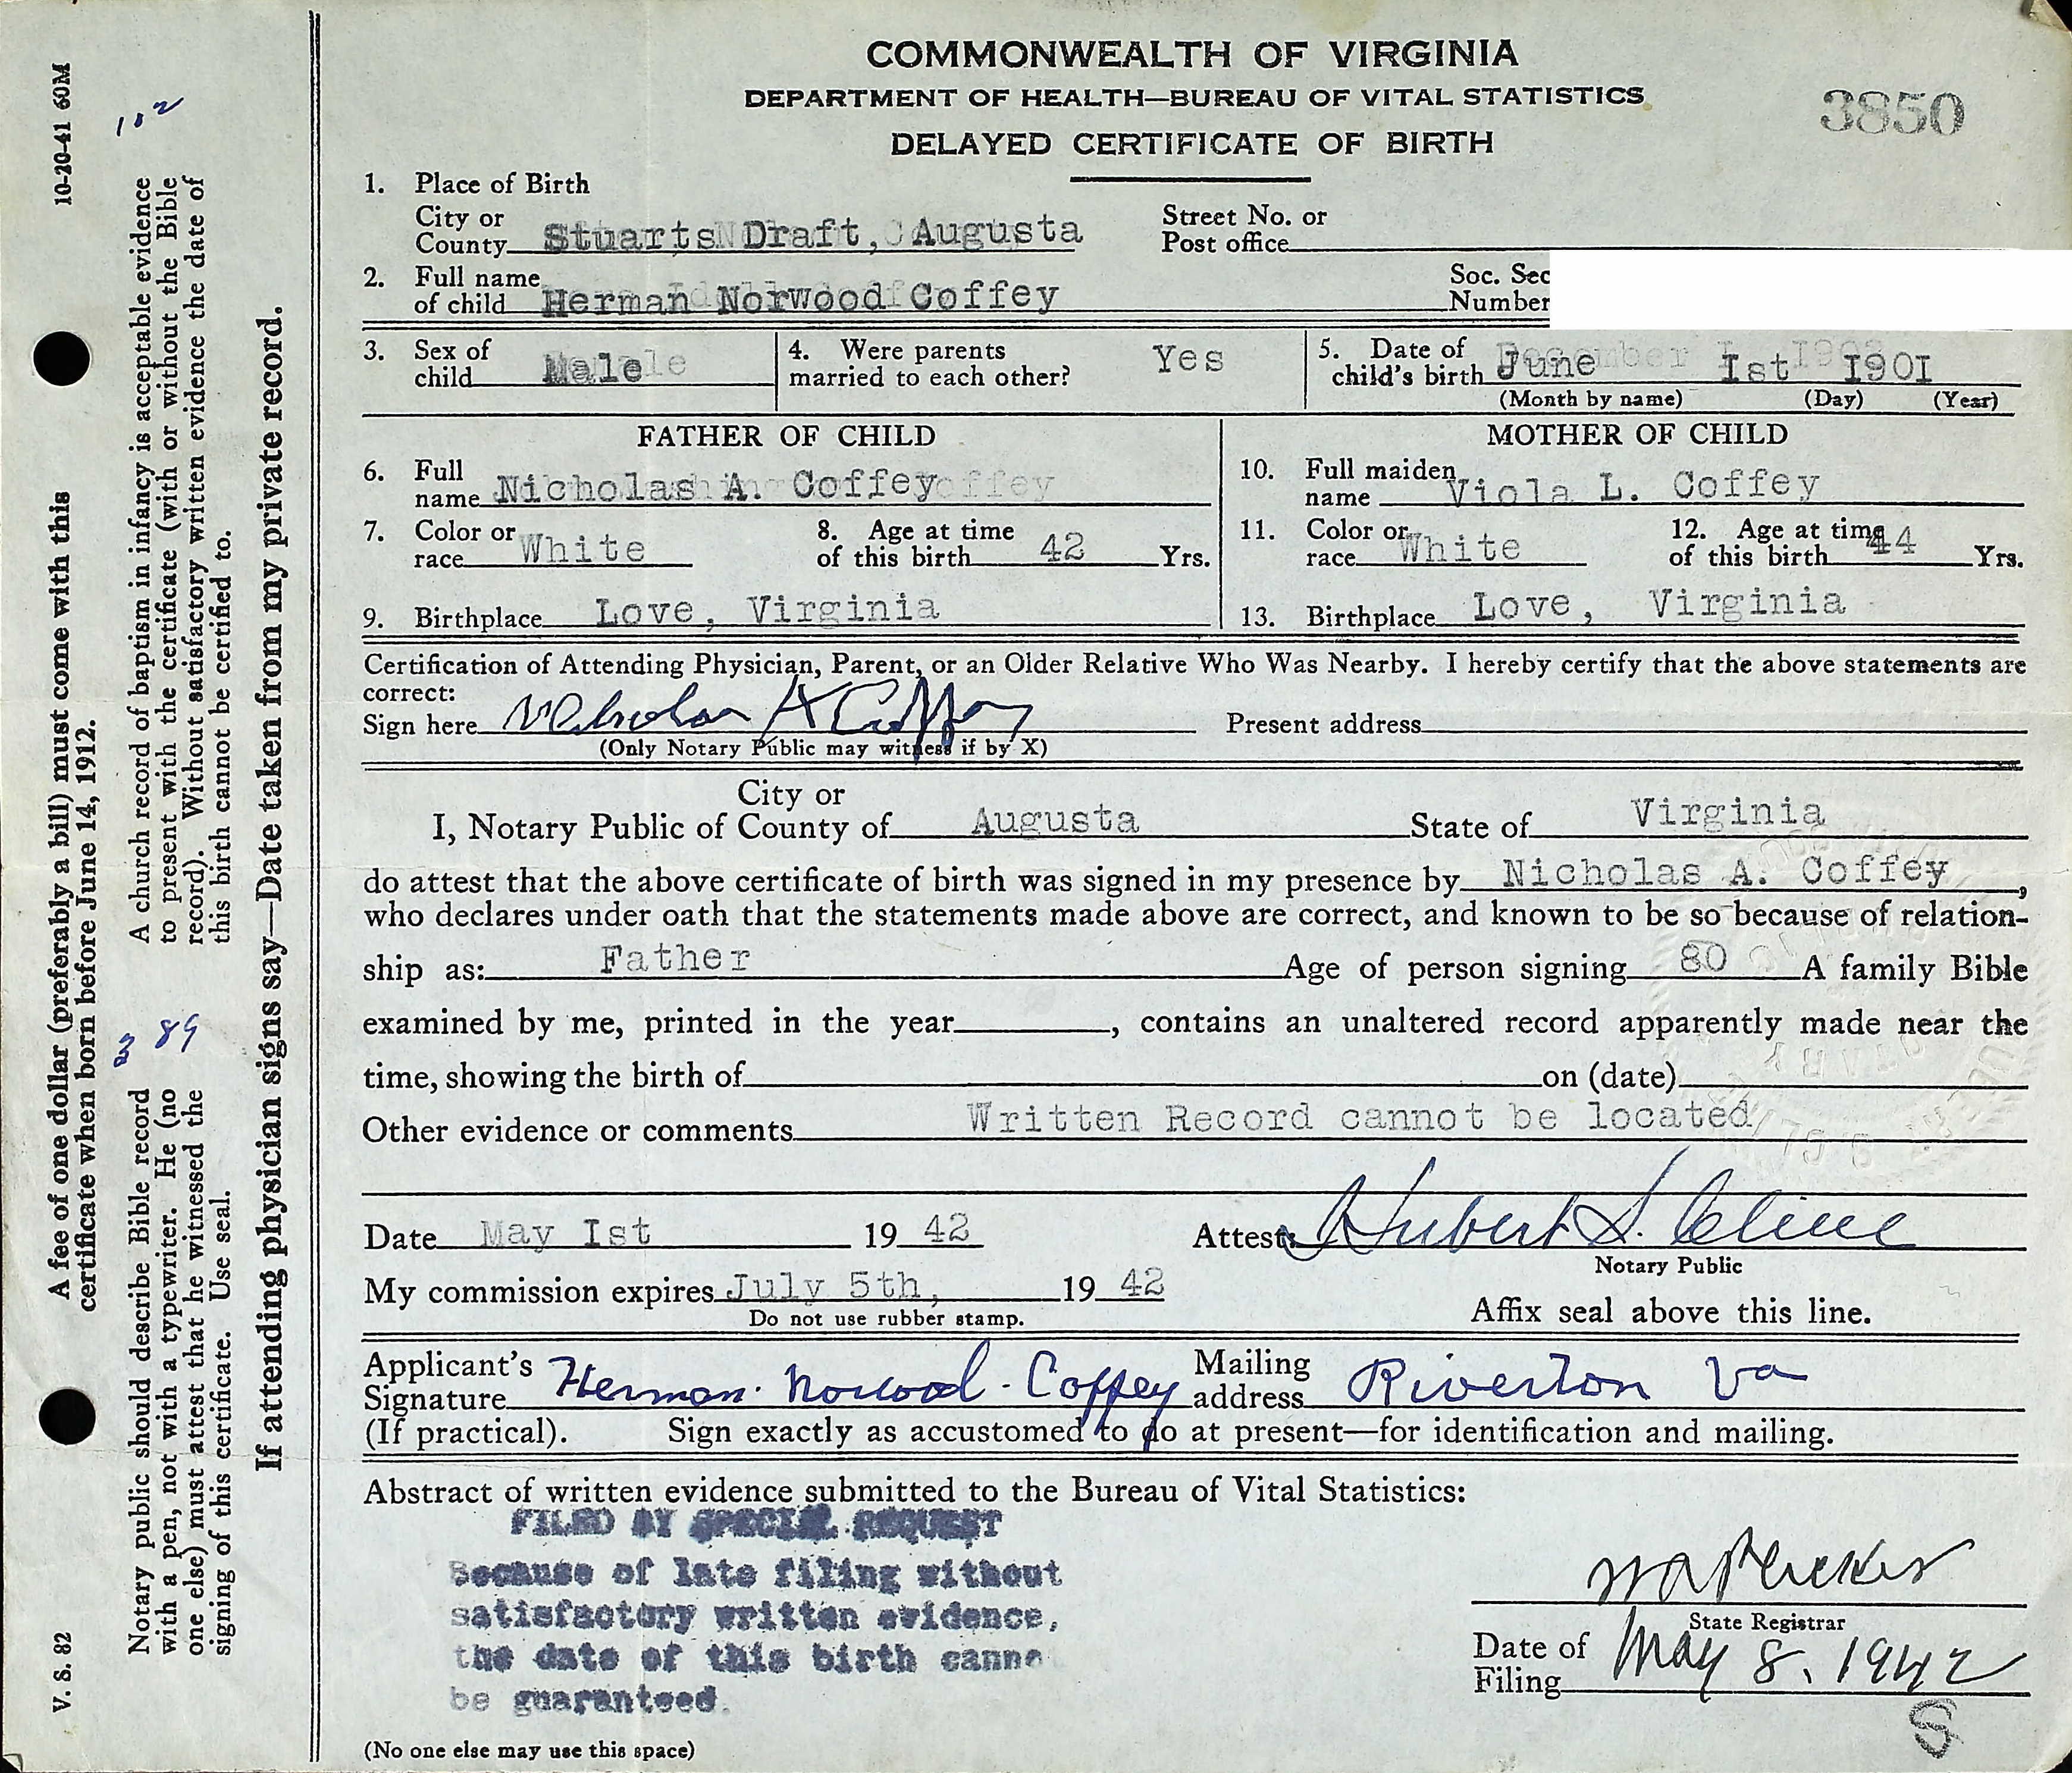 COMMONWEALTH OF VIRGINIA
DEPARTMENT OF HEALTH—BUREAU OF VITAL STATISTICS
DELAYED CERTIFICATE OF BIRTH
3850
1. Place of Birth
City or County Stuarts Draft, Augusta Street No. or Post office
2. Full name of child Herman Norwood Coffey Soc. Sec Number
3. Sex of child Male 4. Were parents married to each other? Yes 5. Date of child's birth June Ist I90I
(Month by name) (Day) (Year)
FATHER OF CHILD MOTHER OF CHILD
6. Full name Nicholas A. Coffey 10. Full maiden name Viola L. Coffey
7. Color or race White 8. Age at time of this birth 42 Yrs. 11. Color or race White 12. Age at time of this birth 44 Yrs.
9. Birthplace Love, Virginia 13. Birthplace Love, Virginia
Certification of Attending Physician, Parent, or an Older Relative Who Was Nearby. I hereby certify that the above statements are
correct:
Sign here Nicholas A Coffey Present address
(Only Notary Public may witness if by X)
I, Notary Public of City or County of Augusta State of Virginia
do attest that the above certificate of birth was signed in my presence by Nicholas A. Coffey,
who declares under oath that the statements made above are correct, and known to be so because of relation-
ship as: Father Age of person signing 80 A family Bible
examined by me, printed in the year , contains an unaltered record apparently made near the
time, showing the birth of on (date)
Other evidence or comments Written Record cannot be located
Date May Ist 19 42 Attest: Hubert S. Cline
Notary Public
My commission expires July 5th, 19 42
Do not use rubber stamp. Affix seal above this line.
Applicant's Signature Herman. Norwood - Coffey Mailing address Riverton Va
(If practical). Sign exactly as accustomed to do at present—for identification and mailing.
Abstract of written evidence submitted to the Bureau of Vital Statistics:
FILED BY SPECIAL REQUEST
Because of late filing without
satisfactory written evidence,
the date of this birth canno
be guaranteed.
(No one else may use this space)
W A Plecker
State Registrar
Date of Filing May 8, 1942
S
V. S. 82 A fee of one dollar (preferably a bill) must come with this 10-20-41 60M
certificate when born before June 14, 1912.
Notary public should describe Bible record
with a pen, not with a typewriter. He (no
one else) must attest that he witnessed the
signing of this certificate. Use seal.
89
A church record of baptism in infancy is acceptable evidence
to present with the certificate (with or without the Bible
record). Without satisfactory written evidence the date of
this birth cannot be certified to.
102
If attending physician signs say—Date taken from my private record.